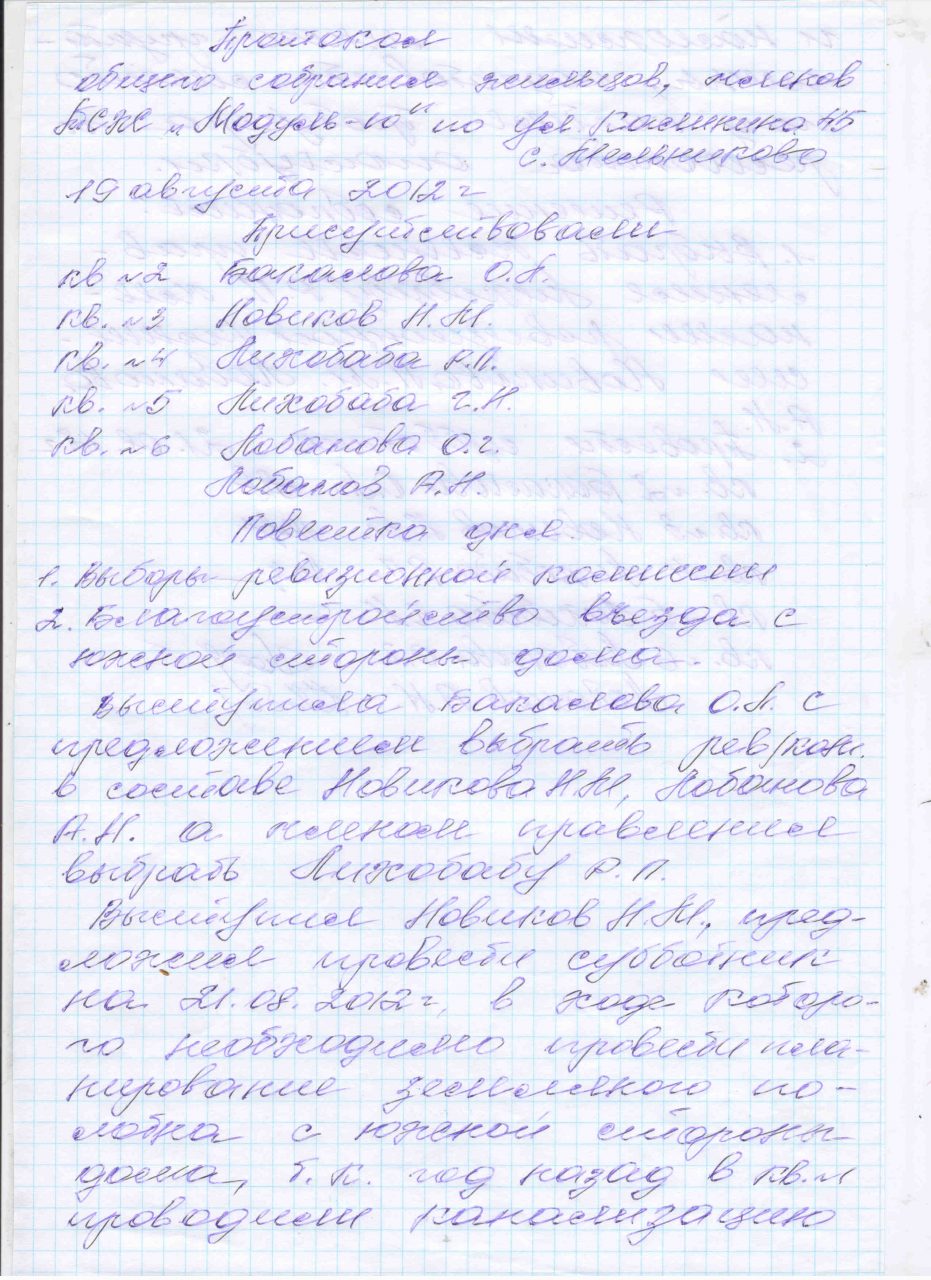 Протокол
общего собрания жильцов, членов
ТСЖ "Модуль-10" по ул Калинина 45
с. Мельниково
19 августа 2012 г
Присутствовали
кв №2 Бакалова О.Л.
кв. №3 Новиков Н.М.
кв. №4 Лихобаба Р.П.
кв. №5 Лихобаба Г.Н.
кв. №6 Лобанова О.г.
Лобанов А.Н.
Повестка дня.
1. Выборы ревизионной комиссии
2. Благоустройство въезда с
южной стороны дома.
Выступила Бакалова О.Л. с
предложением выбрать рев/ком.
в составе Новикова НМ, Лобанова
А.Н. а членом правления
выбрать Лихобабу Р.П.
Выступил Новиков Н.М., пред-
ложил провести субботник
на 21.08.2012г, в ходе которо-
го необходимо провести пла-
нирование земляного по-
лотна с южной стороны
дома, т.к. год назад в
проводили канализацию